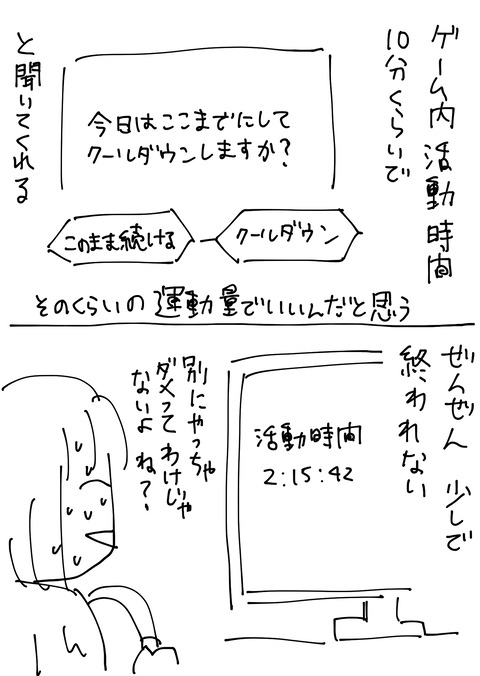 ゲーム内活動時間
10分くらいで
今日はここまでにして
クールダウンしますか?
このまま続ける
クールダウン
と聞いてくれる
そのくらいの運動量でいいんだと思う
ぜんぜん 少しで
終われない
活動時間
2:15:42
別にやっちゃ
ダメって わけじゃ
ないよ ね?